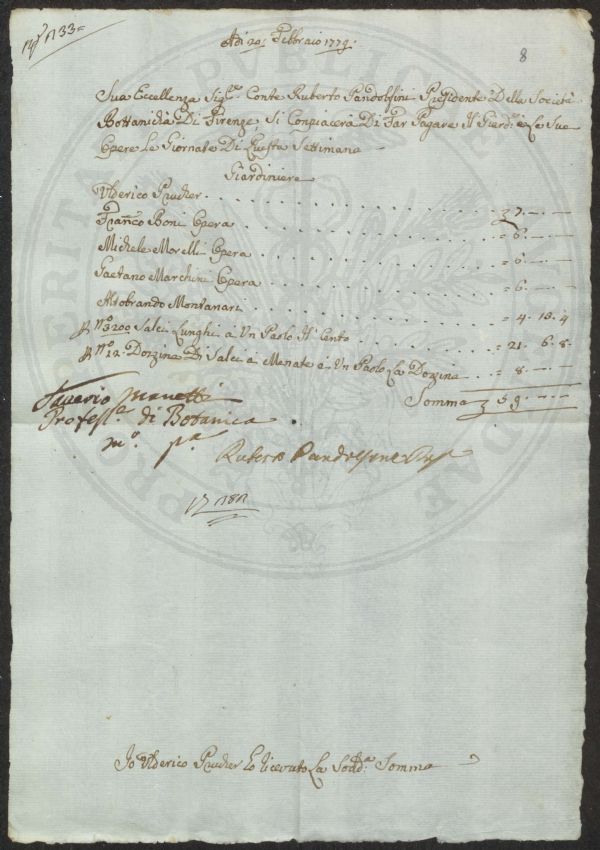 N° 133
Adi 20: Febbraio 1779:
8
Sua Eccellenza Sig.re Conte Ruberto Pandolfini Presidente Della Società
Bottanicha Di Firenze Si Conpiacera Di Far Pagare Il Giard.re e Le Sue
Opere Le Giornate Di Questa Settimana
Giardiniere
Ulderico Prucher . . . . . . . . . 7. — —
Franco Boni Opera . . . . . . . . . 6. — —
Michele Morelli Opera . . . . . . . . . 6. — —
Gaetano Marchini Opera . . . . . . . . . 6. — —
Aldobrando Montanari . . . . . . . . . 4. 13. 4
P N° 3200 Salci Lunghi a Un Paolo Il Cento . . . . . . 21. 6. 8
P N° 12. Dozzina Di Salci a Menate a Un Paolo La Dozzina . . 8. — —
Somma 59. — —
Saverio Manetti
Profess.e di Botanica
m.o p.a
Ruberto Pandolfini
Io Ulderico Prucher ho ricevuto La Sodd.a Somma
PRO PUBLICAE